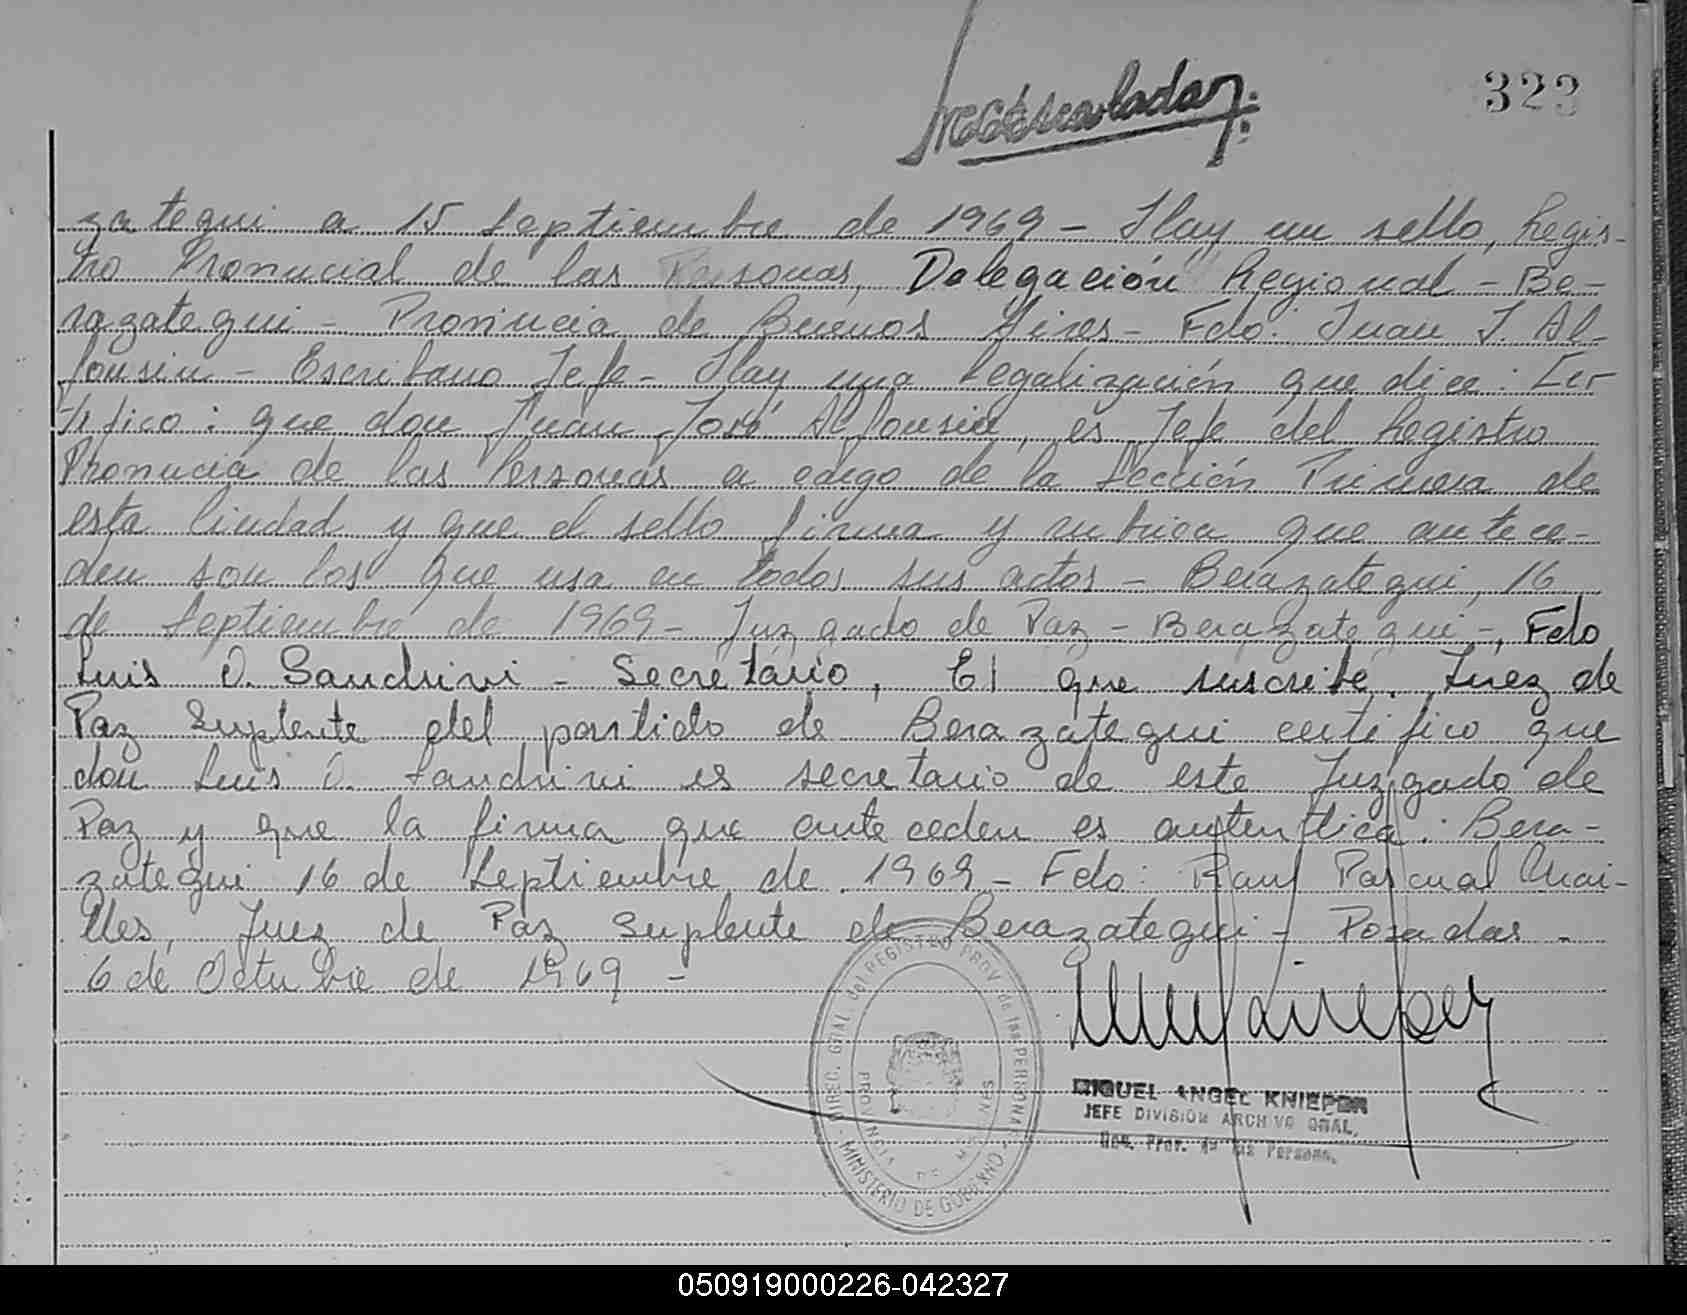 323
zategui a 15 Septiembre de 1969 - Hay un sello, Regis-
tro Provincial de las Personas, Delegación Regional - Be-
razategui - Provincia de Buenos Aires - Fdo: Juan J. Al-
fonsin - Escribano Jefe - Hay una Legalización que dice: Cer
tifico: que don Juan José Alfonsin, es Jefe del Registro
Provincia de las Personas a cargo de la Sección Primera de
esta Ciudad y que el sello firma y rubrica que antece-
den son los que usa en todos sus actos - Berazategui, 16
de Septiembre de 1969 - Juzgado de Paz - Berazategui -, Fdo
Luis O. Sandrini - Secretario, El que suscribe, Juez de
Paz Suplente del partido de Berazategui certifico que
don Luis O. Sandrini es secretario de este Juzgado de
Paz y que la firma que anteceden es autentica. Bera-
zategui 16 de Septiembre de 1969 - Fdo: Raul Pascual
Juez de Paz Suplente de Berazategui - Posadas -
6 de Octubre de 1969 -
DIREC. GRAL del REGISTRO PROV de las PERSONAS
MINISTERIO DE GOBIERNO
PROVINCIA DE MISIONES
MIGUEL ANGEL KNIEPER
JEFE DIVISION ARCHIVO GRAL.
Reg. Prov. de las Persona.
050919000226-042327